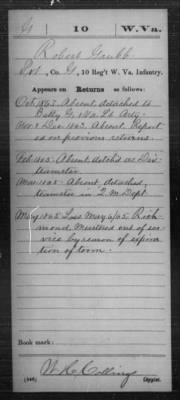 G | 10 | W. Va.
Robert Grubb
Pvt, Co. G, 10 Reg't W. Va. Infantry.
Appears on Returns as follows:
Oct 1863. Absent, detached to
Batty G, 1 Va. Lt. Arty.
Nov & Dec 1863. Absent. Report
as on previous returns.
Feb 1865 - Absent, detchd as Div
teamster
Mar 1865 - Absent, detached,
teamster in Q. M. Dept
May 1865 Loss May 6/65 Rich-
mond. Mustered out of ser-
vice by reason of expira-
tion of term.
Book mark:
W. H. Collings
(546) Copyist.